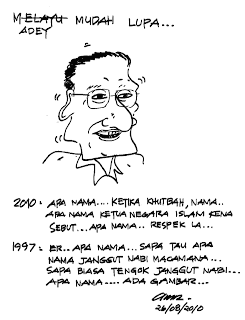 MELAYU MUDAH LUPA...
ADEY
2010: APA NAMA.... KETIKA KHUTBAH, NAMA..
APA NAMA KETUA NEGARA ISLAM KENA
SEBUT... APA NAMA.. RESPEK LA...
1997: ER.. APA NAMA... SAPA TAU APA
NAMA JANGGUT NABI MACAMANA...
SAPA BIASA TENGOK JANGGUT NABI...
APA NAMA.... ADA GAMBAR...
26/08/2010